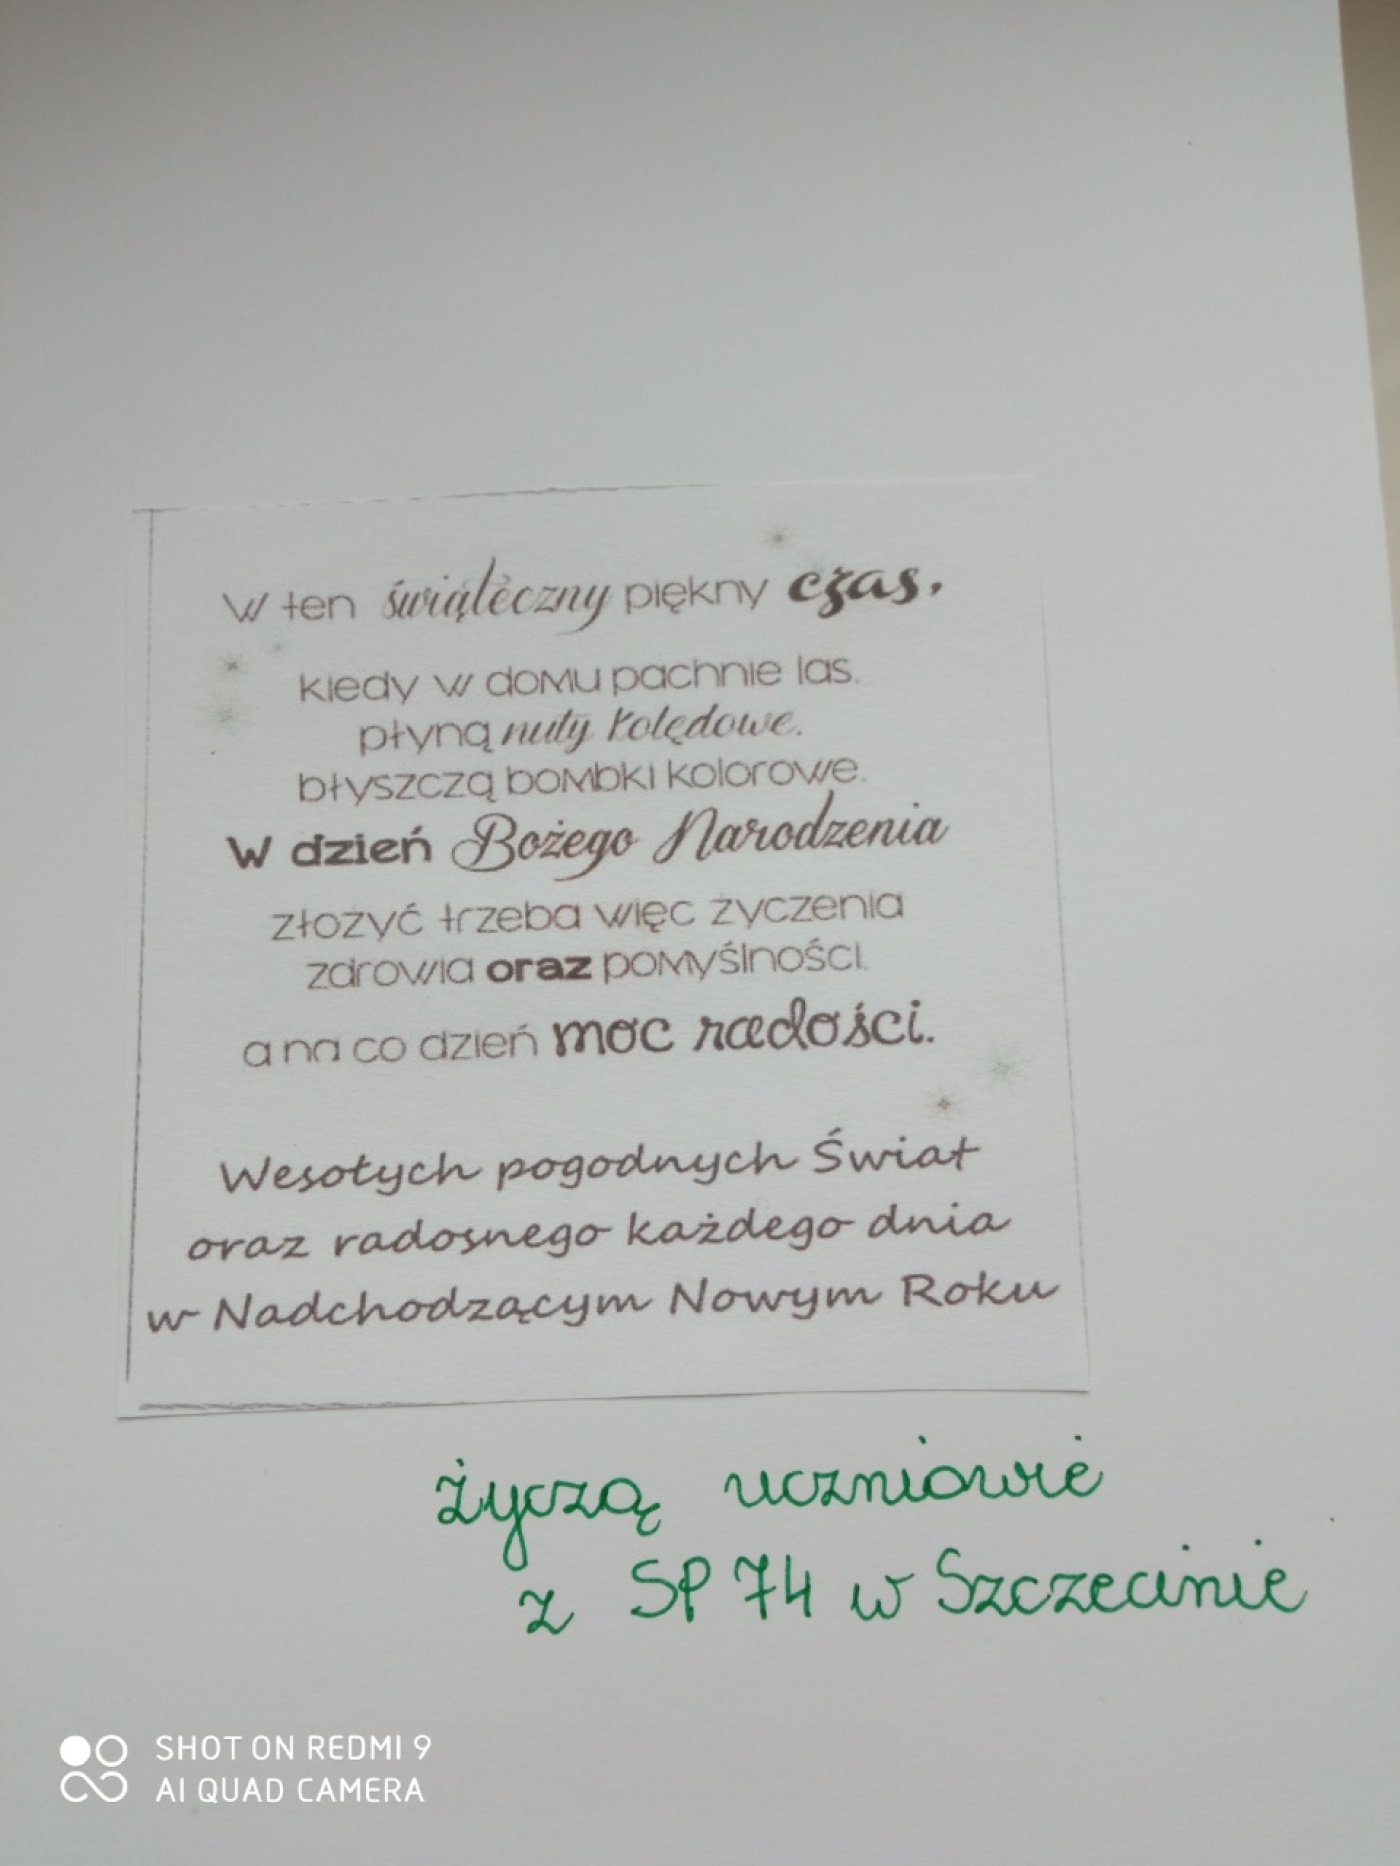 W ten świąteczny piękny czas,
kiedy w domu pachnie las.
płyną nuty kolędowe.
błyszczą bombki kolorowe.
W dzień Bożego Narodzenia
złożyć trzeba więc życzenia
zdrowia oraz pomyślności.
a na co dzień moc radości.
Wesołych pogodnych Świat
oraz radosnego każdego dnia
w Nadchodzącym Nowym Roku
życzą uczniowie
z SP 74 w Szczecinie
SHOT ON REDMI 9
AI QUAD CAMERA